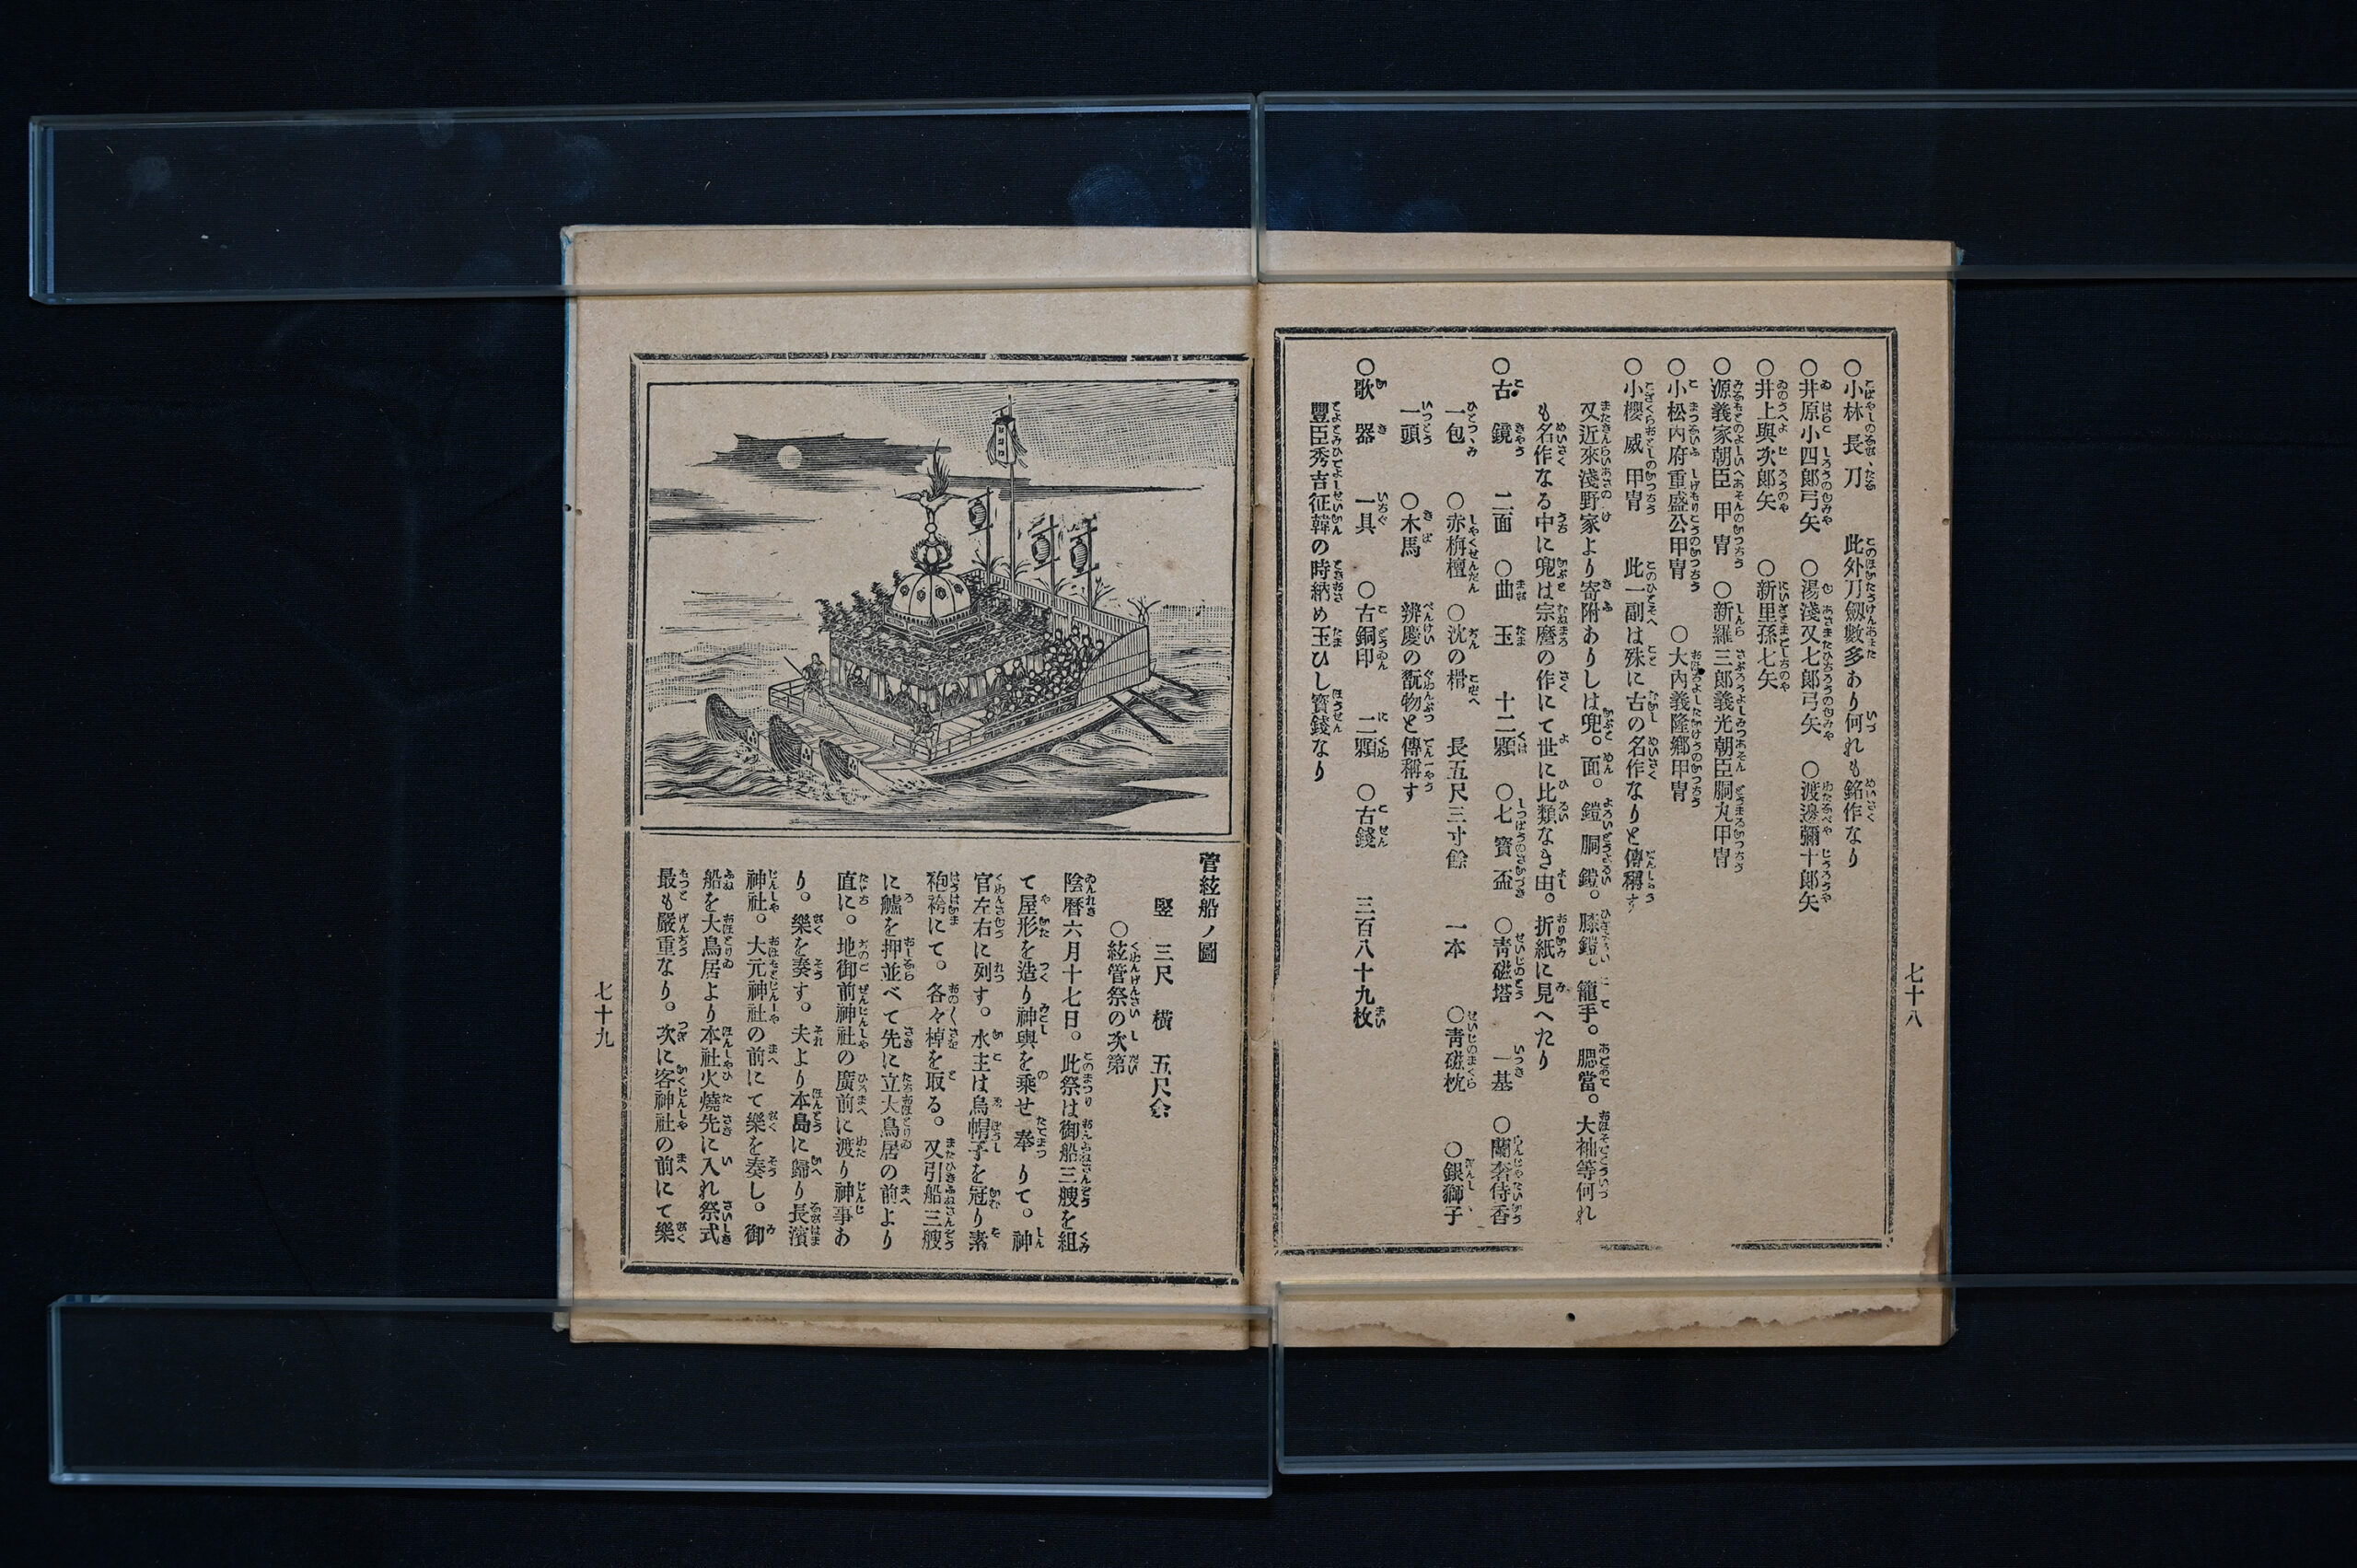 ○小林長刀　此外刀劔數多あり何れも銘作なり
○井原小四郎弓矢　○湯淺又七郎弓矢　○渡邊彌十郎矢
○井上與次郎矢　○新里孫七矢
○源義家朝臣甲冑　○新羅三郎義光朝臣胴丸甲冑
○小松內府重盛公甲冑　○大內義隆鄕甲冑
○小櫻威甲冑　此一副は殊に古の名作なりと傳稱す
又近來淺野家より寄附ありしは兜。面。鎧胴鎧。膝鎧。籠手。腮當。大袖等何れ
も名作なる中に兜は宗麿の作にて世に比類なき由。折紙に見へたり
○古鏡　二面　○曲玉　十二顆　○七寶盃　○靑磁塔　一基　○蘭奢侍香
一包　○赤栴檀　○沈の榾　長五尺三寸餘　一本　○靑磁枕　○銀獅子
一頭　○木馬　辨慶の翫物と傳稱す
○歌器　一具　○古銅印　二顆　○古錢　三百八十九枚
豐臣秀吉征韓の時納め玉ひし寳錢なり
七十八
管絃船ノ圖
竪　三尺　橫　五尺余
○絃管祭の次第
陰曆六月十七日。此祭は御船三艘を組
て屋形を造り神輿を乘せ奉りて。神
官左右に列す。水主は烏帽子を冠り素
袍袴にて。各々棹を取る。又引船三艘
に艫を押並べて先に立大鳥居の前より
直に。地御前神社の廣前に渡り神事あ
り。樂を奏す。夫より本島に歸り長濱
神社。大元神社の前にて樂を奏し。御
船を大鳥居より本社火燒先に入れ祭式
最も嚴重なり。次に客神社の前にて樂
七十九